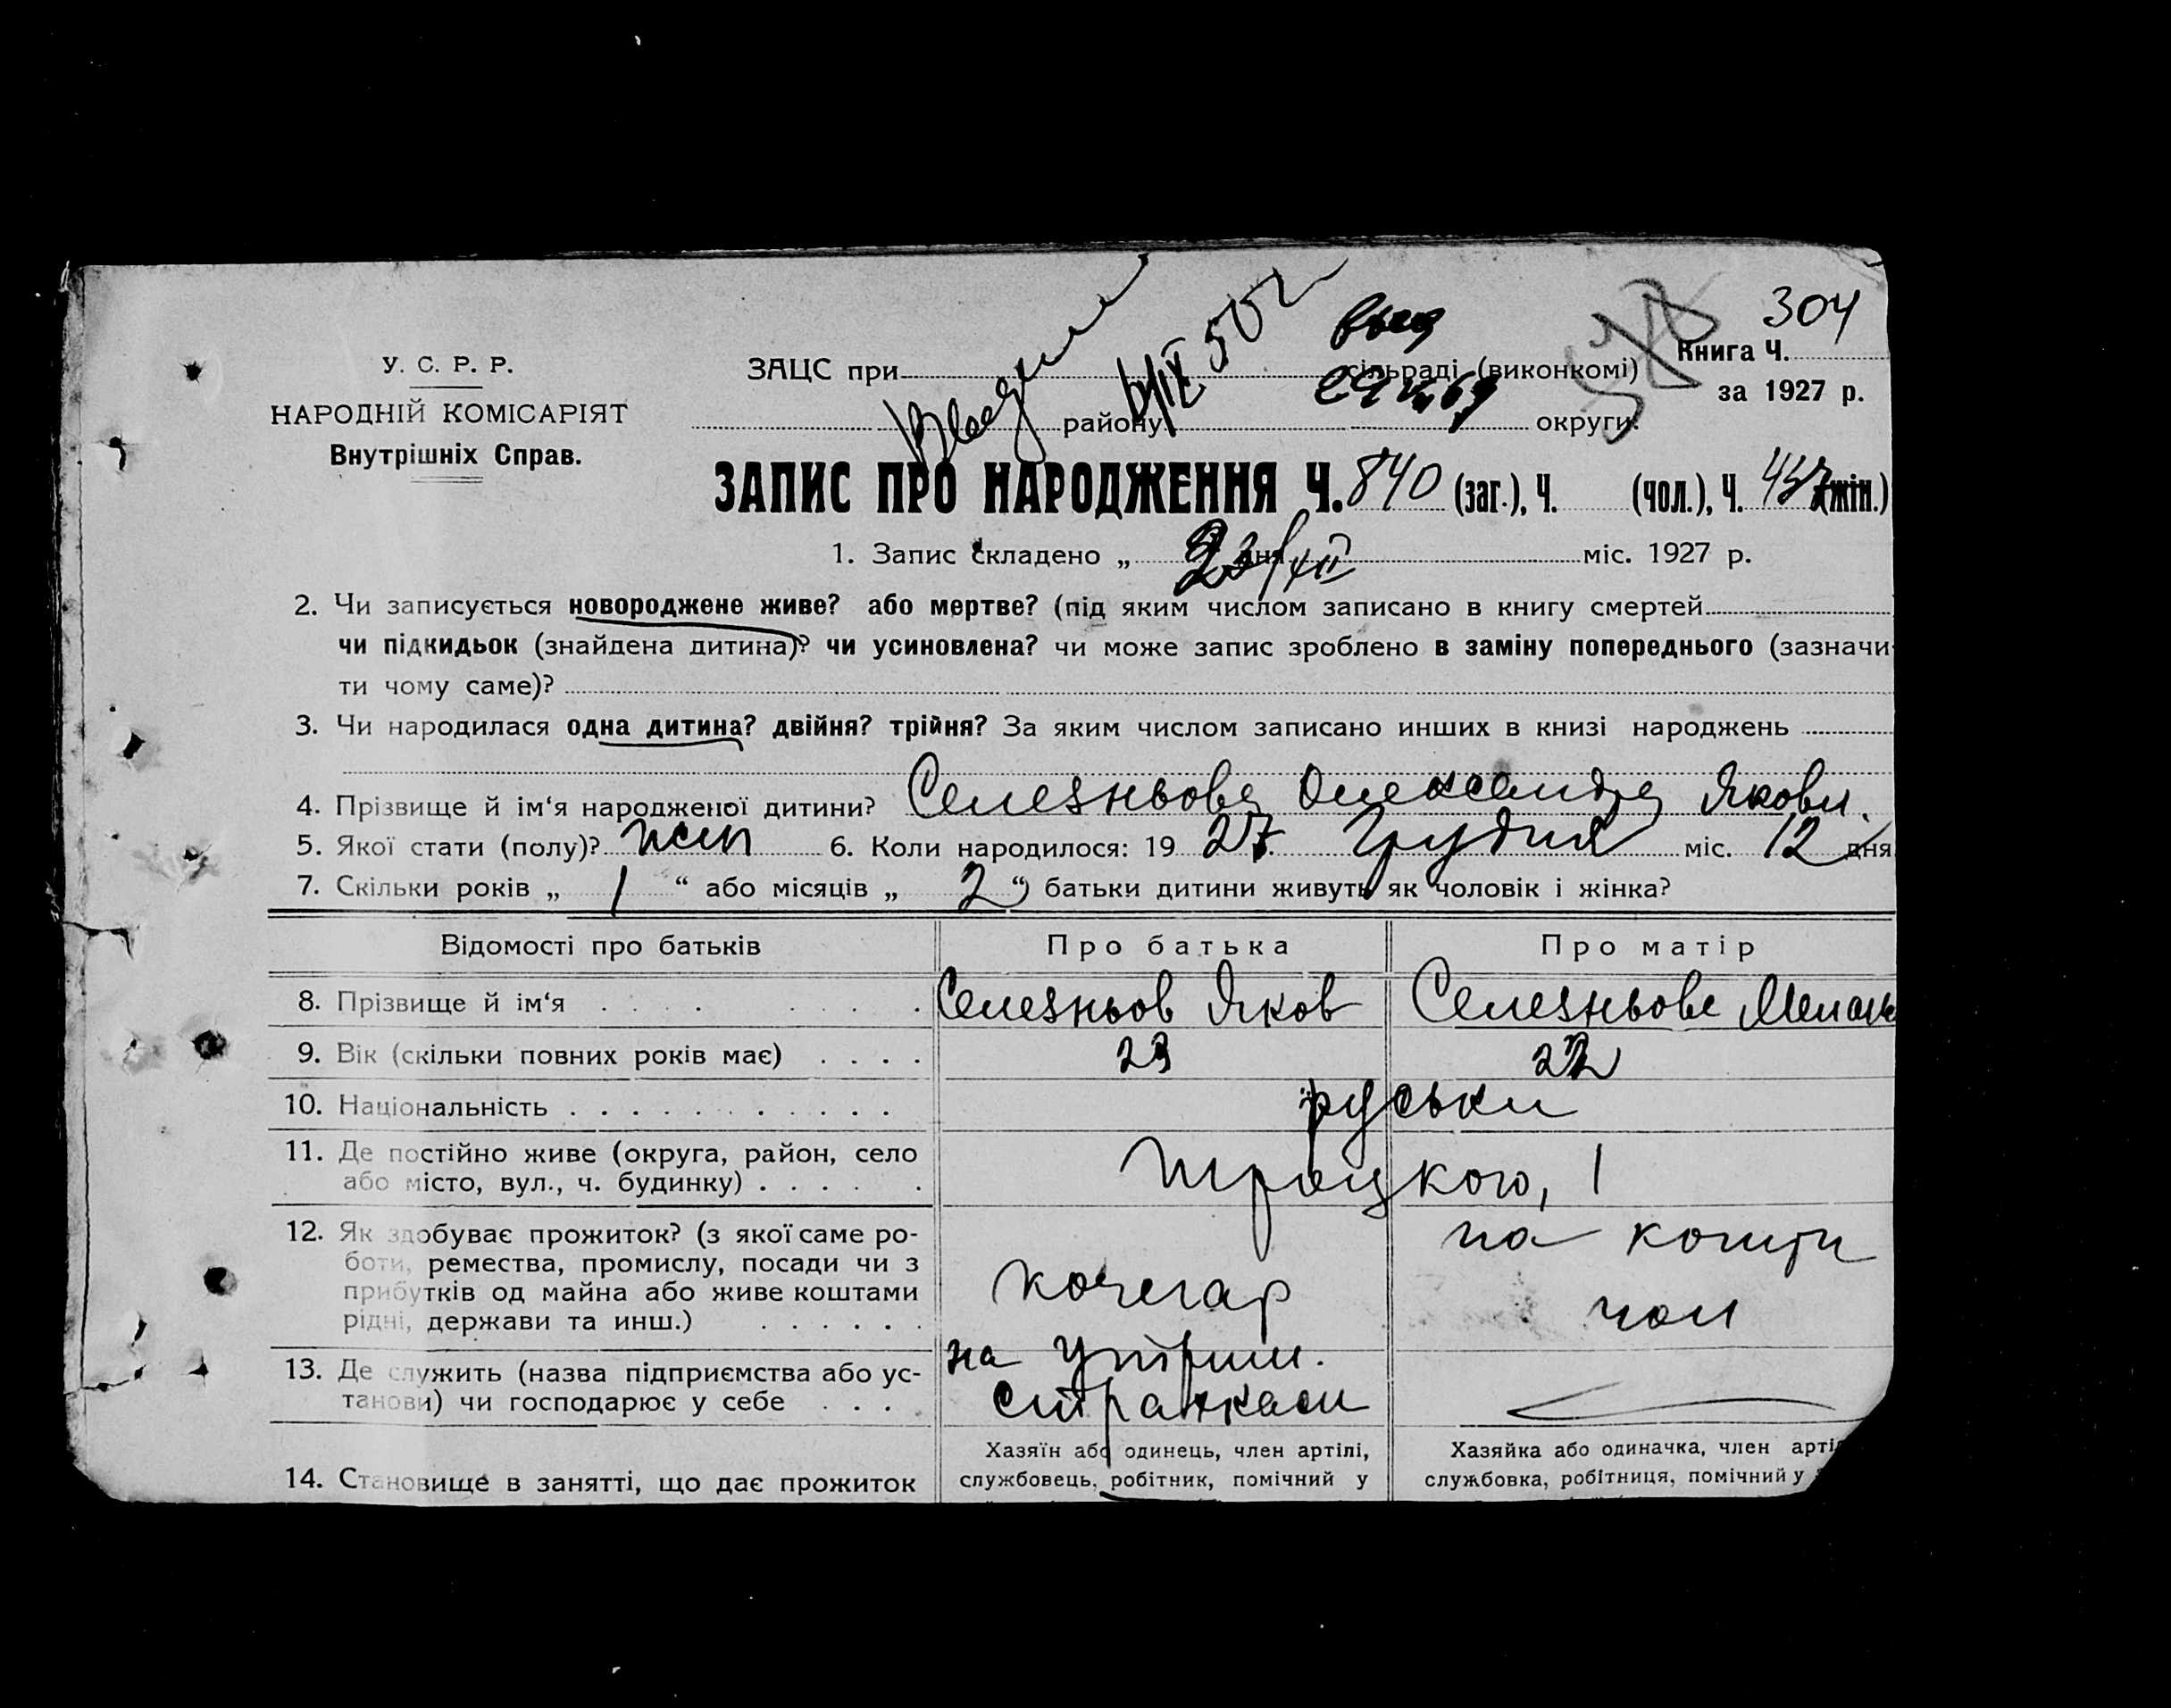 304
У. С. Р. Р.
НАРОДНІЙ КОМІСАРІЯТ
Внутрішніх Справ.
ЗАЦС при сільраді (виконкомі)
району округи.
Книга Ч.
за 1927 р.
ЗАПИС ПРО НАРОДЖЕННЯ Ч. 840 (заг.), Ч. (чол.), Ч. 437 (жін.)
1. Запис складено „ 23/XII дня міс. 1927 р.
2. Чи записується новороджене живе? або мертве? (під яким числом записано в книгу смертей
чи підкидьок (знайдена дитина)? чи усиновлена? чи може запис зроблено в заміну попереднього (зазначи-
ти чому саме)?
3. Чи народилася одна дитина? двійня? трійня? За яким числом записано инших в книзі народжень
4. Прізвище й ім‘я народженої дитини? Селезньова Олександра Яковл.
5. Якої стати (полу)? жін 6. Коли народилося: 19 27 Грудня міс. 12 дня
7. Скільки років „ 1 “ або місяців „ 2 “ батьки дитини живуть як чоловік і жінка?
Відомості про батьків Про батька Про матір
8. Прізвище й ім‘я Селезньов Яков Селезньова Мелань
9. Вік (скільки повних років має) 23 22
10. Національність руськи
11. Де постійно живе (округа, район, село
або місто, вул., ч. будинку) Троцкого, 1
12. Як здобуває прожиток? (з якої саме ро-
боти, ремества, промислу, посади чи з
прибутків од майна або живе коштами
рідні, держави та инш.) кочегар на кошти чол
13. Де служить (назва підприємства або ус-
танови) чи господарює у себе на утрим. страхкаси
14. Становище в занятті, що дає прожиток
Хазяїн або одинець, член артілі,
службовець, робітник, помічний у
Хазяйка або одиначка, член арті
службовка, робітниця, помічний у